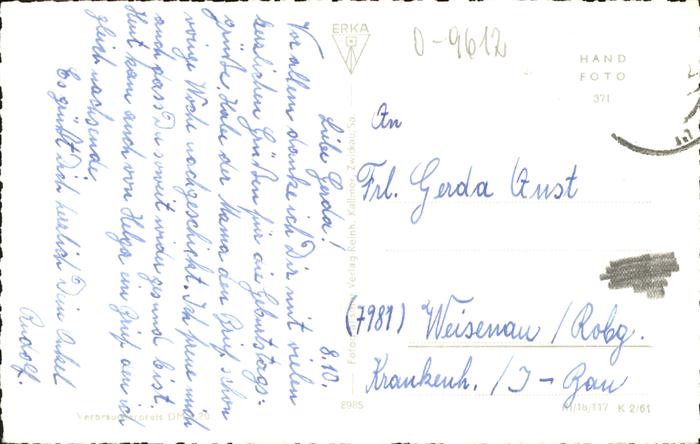 8.10.
Liebe Gerda!
Vor allem danke ich Dir mit vielen
herzlichen Grüßen für die Geburtstags-
grüße. Habe der Mama den Brief schon
vorige Woche nachgeschickt. Ich freue mich
auch dass Du soweit wieder gesund bist.
Heut kam auch von Helga ein Brief den ich
gleich nachsende
Es grüßt Dich herzlich Dein Onkel
Rudolf.
ERKA
0-9612
HAND
FOTO
371
An
Frl. Gerda Aust
(7981) Weisenau / Robg.
Krankenh. / I-Bau
Verlag Reinh. Kallmer, Zwickau/Sa.
8985
Verbraucherpreis DM 0,20
III/18/117 K 2/61